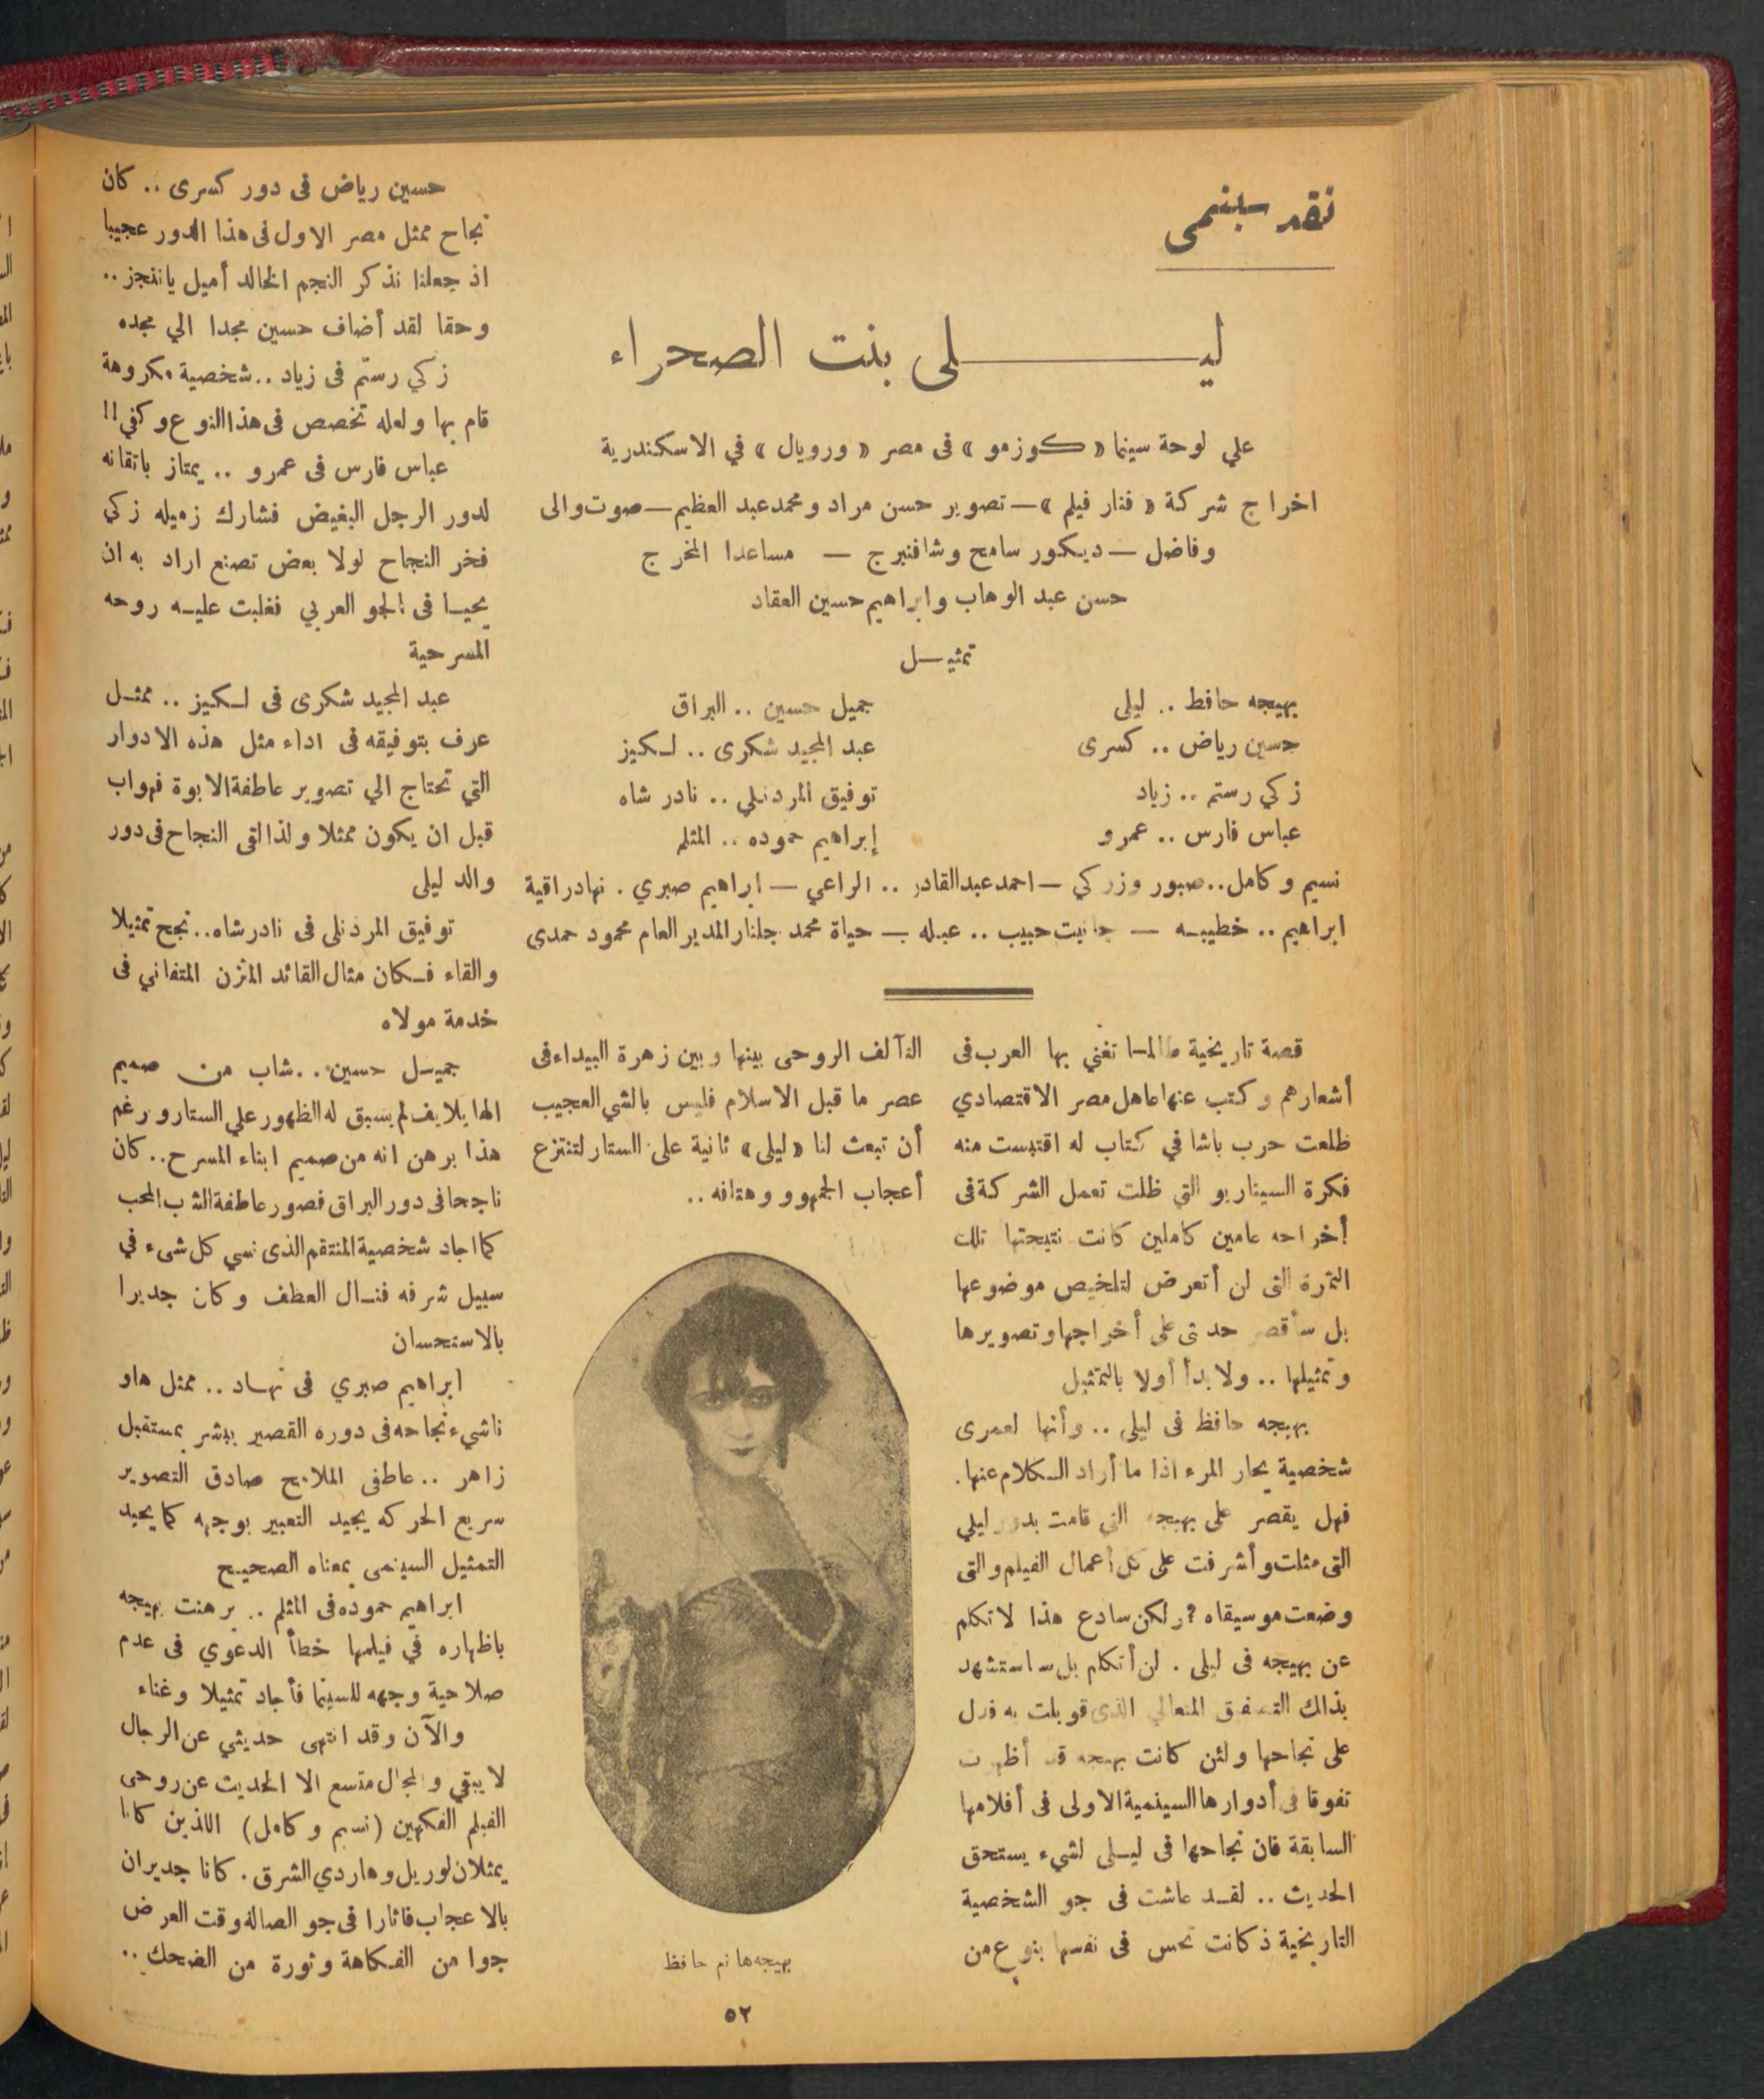 نقد سينمى
ليـــلى بنت الصحراء
علي لوحة سينما « كوزمو » فى مصر « ورويال » في الاسكندرية
اخراج شركة « فنار فيلم » — تصوير حسن مراد ومحمد عبد العظيم — صوت والى
وفاضل — ديكور سامح وشافنبرج — مساعدا المخرج
حسن عبد الوهاب وابراهيم حسين العقاد
تمثيـل
بهيجه حافظ .. ليلى
حسين رياض .. كسرى
زكي رستم .. زياد
عباس فارس .. عمرو
جميل حسين .. البراق
عبد المجيد شكرى .. لكيز
توفيق المردنلي .. نادر شاه
إبراهيم حموده .. المثلم
نسيم وكامل .. صبور وزركي — احمد عبدالقادر .. الراعي — ابراهيم صبري . نهاد راقية
ابراهيم .. خطيبه — جانيت حبيب .. عبله — حياة محمد جلنار المدير العام محمود حمدى
قصة تاريخية طالما تغني بها العرب فى
أشعارهم وكتب عنها عاهل مصر الاقتصادي
طلعت حرب باشا في كتاب له اقتبست منه
فكرة السيناريو التي ظلت تعمل الشركة فى
أخراجه عامين كاملين كانت نتيجتها تلك
الثمرة التى لن أتعرض لتلخيص موضوعها
بل سأقصر حديثى على أخراجها وتصويرها
وتمثيلها .. ولابدأ أولا بالتمثيل
بهيجه حافظ فى ليلى .. وأنها لعمرى
شخصية يحار المرء اذا ما أراد الكلام عنها .
فهل يقصر على بهيجه التي قامت بدور ليلي
التى مثلت وأشرفت على كل أعمال الفيلم والتى
وضعت موسيقاه ؟ ولكن سادع هذا لاتكلم
عن بهيجه فى ليلى . لن أتكلم بل ساستشهد
بذاك التصفيق المتعالي الذى قوبلت به فدل
على نجاحها ولئن كانت بهيجه قد أظهرت
تفوقا فى أدوارها السينمية الاولى فى أفلامها
السابقة فان نجاحها فى ليلى لشيء يستحق
الحديث .. لقد عاشت فى جو الشخصية
التاريخية ذ كانت تحس فى نفسها بنوع من
التآلف الروحى بينها وبين زهرة البيداء فى
عصر ما قبل الاسلام فليس بالشي العجيب
أن تبعث لنا « ليلى » ثانية على الستار لتنتزع
أعجاب الجمهور وهتافه ..
بهيجه هانم حافظ
حسين رياض فى دور كسرى .. كان
نجاح ممثل مصر الاول فى هذا الدور عجيبا
اذ جعلنا نذكر النجم الخالد أميل ياننجز ..
وحقا لقد أضاف حسين مجدا الي مجده
زكي رستم فى زياد .. شخصية مكروهة
قام بها ولعله تخصص فى هذا النوع وكفي !!
عباس فارس فى عمرو .. يمتاز باتقانه
لدور الرجل البغيض فشارك زميله زكي
فخر النجاح لولا بعض تصنع اراد به ان
يحيـا فى الجو العربي فغلبت عليـه روحه
المسرحية
عبد المجيد شكرى فى لـكيز .. ممثـل
عرف بتوفيقه فى اداء مثل هذه الادوار
التي تحتاج الي تصوير عاطفة الابوة فهو اب
قبل ان يكون ممثلا ولذا لقى النجاح فى دور
والد ليلى
توفيق المردنلى فى نادر شاه .. نجح تمثيلا
والقاء فـكان مثال القائد المتزن المتفاني فى
خدمة مولاه
جميـل حسين .. شاب من صميم
الهايلايف لم يسبق له الظهور علي الستار ورغم
هذا برهن انه من صميم ابناء المسرح .. كان
ناجحا فى دور البراق فصور عاطفة الشب المحب
كما اجاد شخصية المنتقم الذى نسي كل شىء في
سبيل شرفه فنـال العطف وكان جديرا
بالاستحسان
ابراهيم صبري فى نهـاد .. ممثل هاو
ناشيء نجاحه فى دوره القصير يبشر بمستقبل
زاهر .. عاطفى الملامح صادق التصوير
سريع الحركه يجيد التعبير بوجهه كما يجيد
التمثيل السينمى بمعناه الصحيح
ابراهيم حموده فى المثلم .. برهنت بهيجه
باظهاره في فيلمها خطأ الدعوي فى عدم
صلاحية وجهه للسينما فأجاد تمثيلا وغناء
والآن وقد انتهى حديثي عن الرجال
لا يبقي والمجال متسع الا الحديث عن روحى
الفيلم الفكهين ( نسيم وكامل ) اللذين كانا
يمثلان لوريل وهاردي الشرق . كانا جديران
بالاعجاب فاثارا فى جو الصالة وقت العرض
جوا من الفـكاهة وثورة من الضحك ..
٥٢